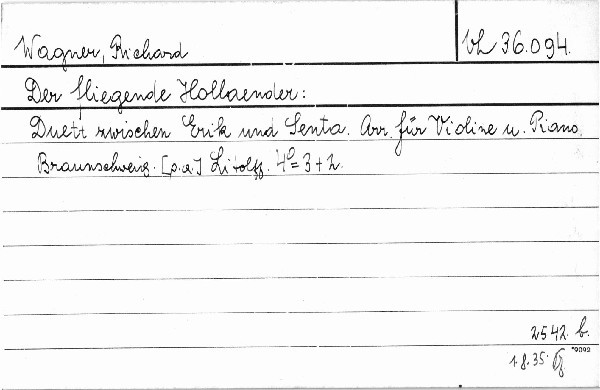 Wagner, Richard
vh 36.094.
Der fliegende Hollaender:
Duett zwischen Erik und Senta. Arr. für Violine u. Piano.
Braunschweig. [s.a.] Litolff. 4°= 3+2.
2542. b.
1.8.35.